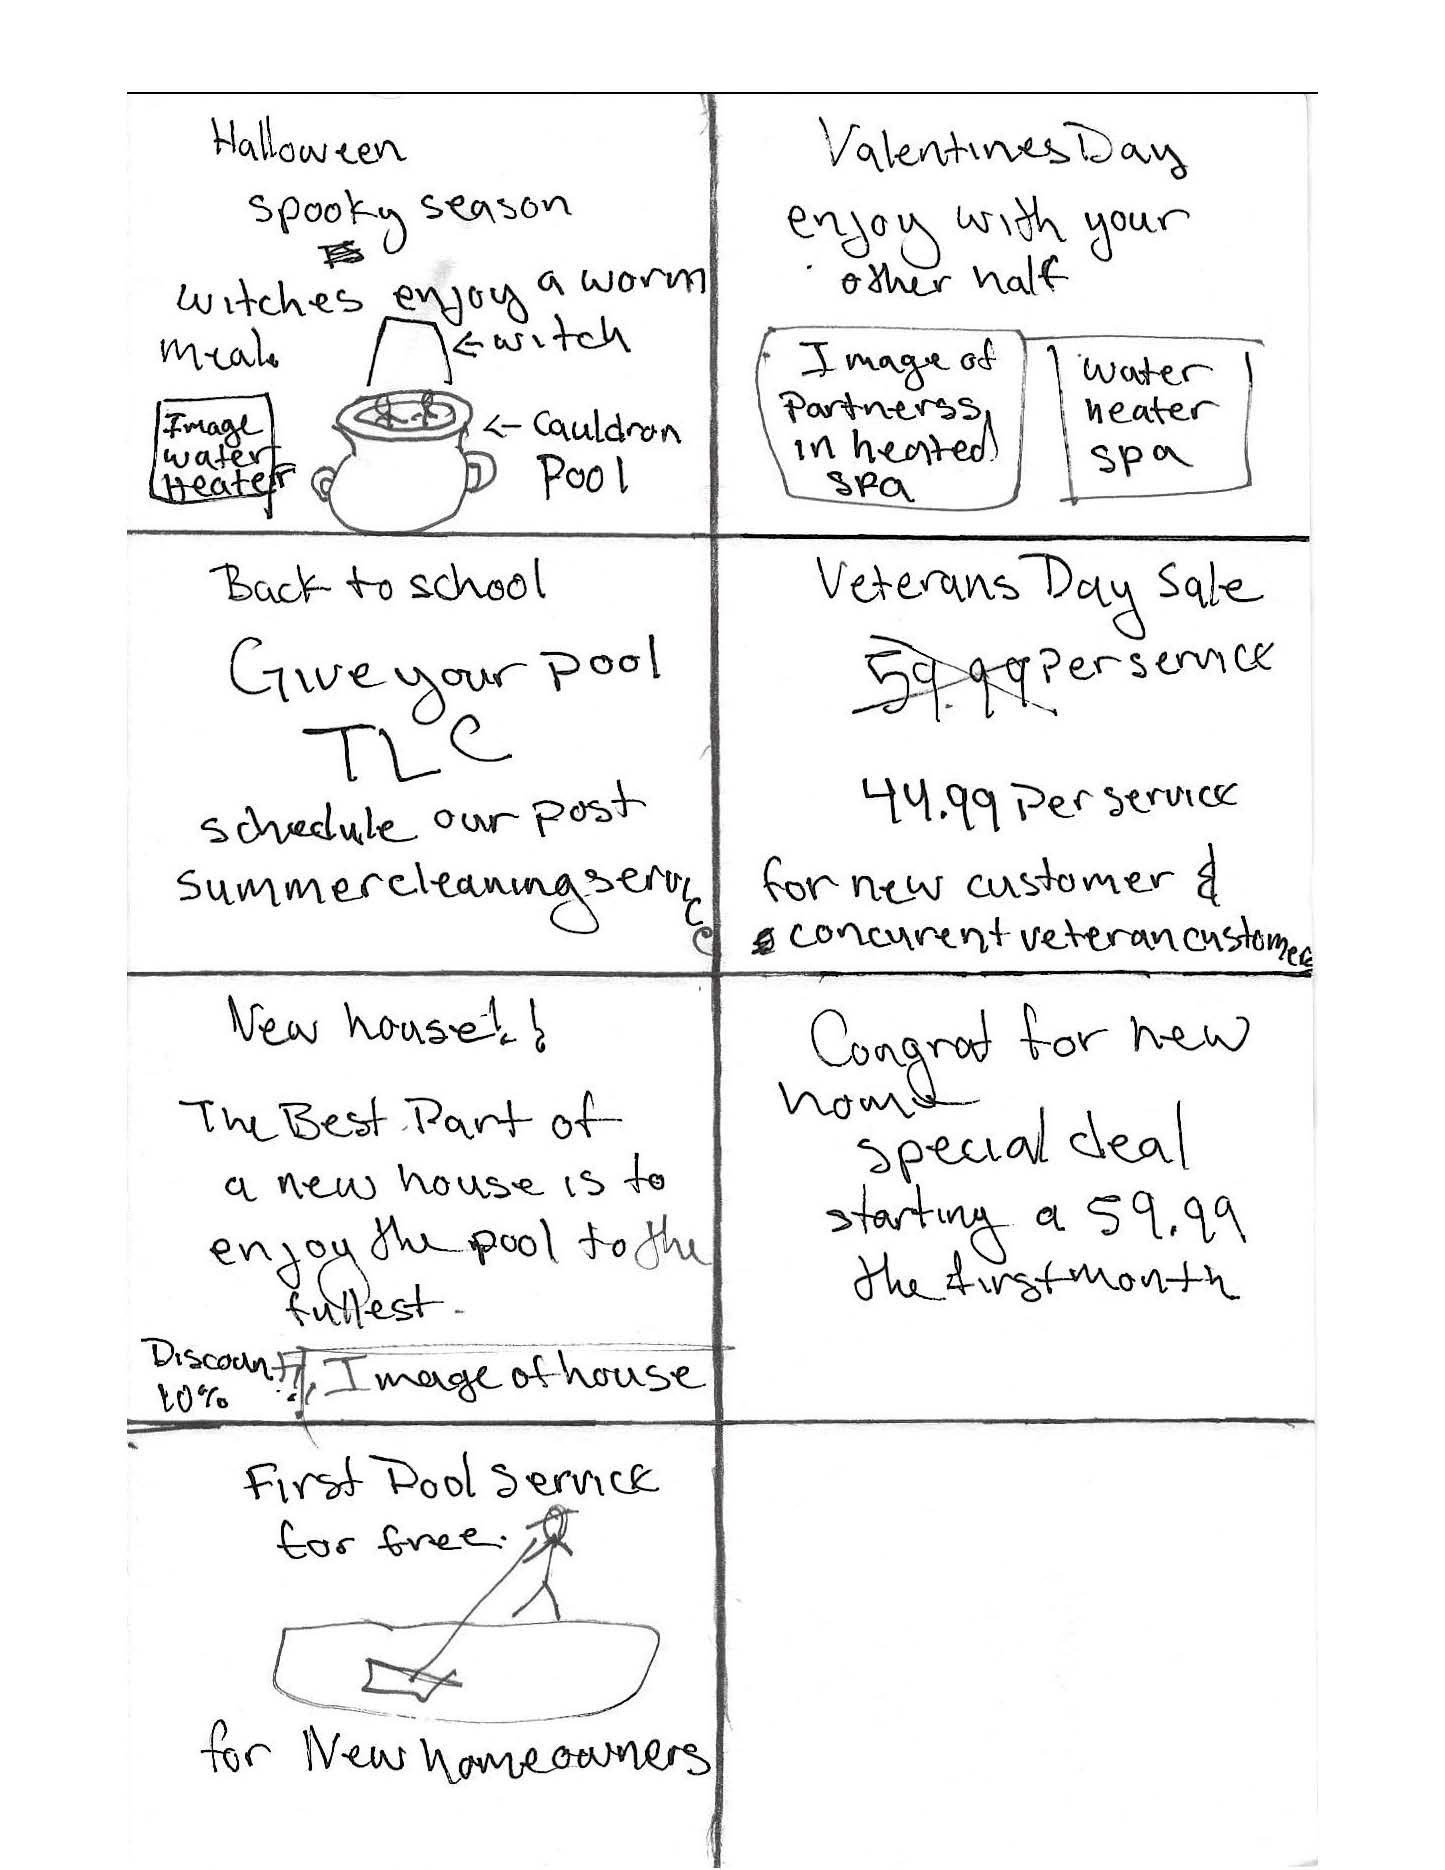 Halloween
spooky season
witches enjoy a worm
meal.
<-witch
Image
water
Heater
<- Cauldron
Pool
Valentines Day
enjoy with your
other half
Image of
Partnerss
in heated
spa
water
heater
spa
Back to school
Give your pool
TLC
schedule our post
summer cleaning service
Veterans Day Sale
59.99 Per service
44.99 Per service
for new customer &
concurent veteran customers
New house!!
The Best Part of
a new house is to
enjoy the pool to the
fullest.
Discount!!
10%
Image of house
Congrat for new
home
special deal
starting a 59.99
the first month
First Pool Service
for free.
for New homeowners